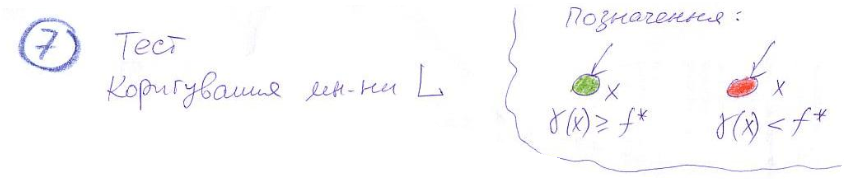 7 Тест
Коригування мн-ни L
Позначення:
x
γ(x) ≥ f*
x
γ(x) < f*